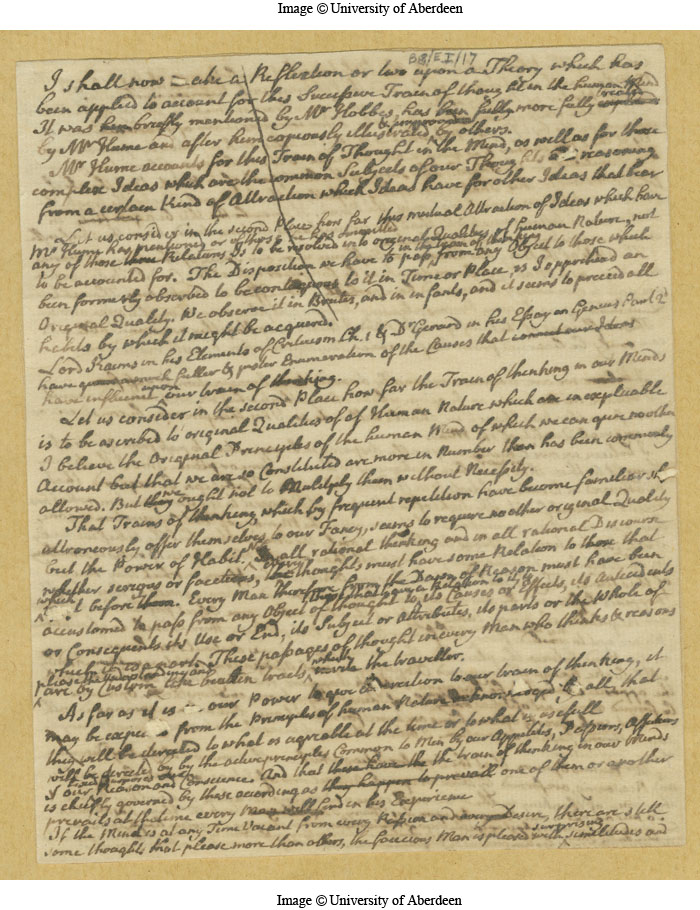 Image © University of Aberdeen
BB/EI/17
I shall now a Reflection or two upon a Theory which has
been applied to account for this Successive Train of thought in the human Mind
It was briefly mentioned by Mr Hobbes, has been more fully
by Mr Hume and after him copiously illustrated by others.
Mr Hume accounts for this Train of Thought in the Mind, as well as for those
complex Ideas which are the common Subjects of our Thoughts & reasoning
from a certain Kind of Attraction which Ideas have for other Ideas that bear
Let us consider in the second Place how far this mutual Attraction of Ideas which have
Mr Hume has mentioned or others
any of those Relations Is to be resolved into original Qualities of human Nature, not
to be accounted for. The Disposition we have to pass from any Object to those which
been formerly observed to be contiguous to it in Time or Place, is I apprehend an
Original Quality. We observe it in Brutes, and in infants, and it seems to preceed all
habits by which it might be acquired.
Lord Kaims in his Elements of Criticism Ch. 1 & Dr Gerard in his Essay on Genius Part 2d
have a much fuller & juster Enumeration of the Causes that connect our Ideas
have influence upon our train of thinking.
Let us consider in the second Place how far the Train of thinking in our Minds
is to be ascribed to original Qualities of Human Nature which are inexplicable
I believe the Original Principles of the human Mind of which we can give no other
Account but that we are so Constituted are more in Number than has been commonly
allowed. But we ought not to Multiply them without Necessity.
That Trains of thinking, which by frequent repetition have become familiar sh
spontaneously offer themselves to our Fancy, seems to require no other original Quality
but the Power of Habit. In all rational thinking and in all rational Discourse
whether serious or facetious, thoughts must have some Relation to those that
went before. Every Man therefore from the Dawn of Reason must have been
accustomed to pass from any Object of thought to its Causes or Effects, its Antecedents
or Consequents its Use or End, its Subject or Attributes, its parts or the Whole of
which it is a part. These passages of thought in every Man who thinks & reasons
are by Custom like beaten tracts which the traveller.
As far as it is in our Power to give direction to our train of thinking, it
may be from the Principles of human Nature acknowledged by all, that
they will be directed to what is agreable at the time or to what is usefull
will be directed by the active principles Common to Men by our Appetites, Passions, Affections
our Reason and Conscience. And that the train of thinking in our Minds
is chiefly governed by these according as one of them or another
prevails at the time every Man will find in his Experience
If the Mind is at any Time vacant from every Passion and Desire, there are still
some thoughts that please more than others, the facetious Man is pleased with surprising similitudes and
Image © University of Aberdeen